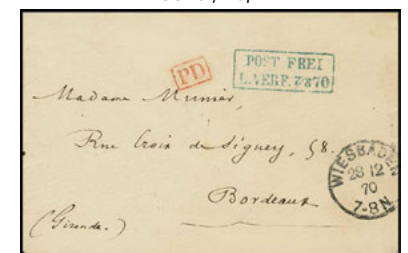 PD
POST FREI
L.VERF. 7/870
Madame Munier,
Rue Croix de Siguey, 58.
Bordeaux
(Gironde.)
WIESBADEN
28 12
70
7-8N